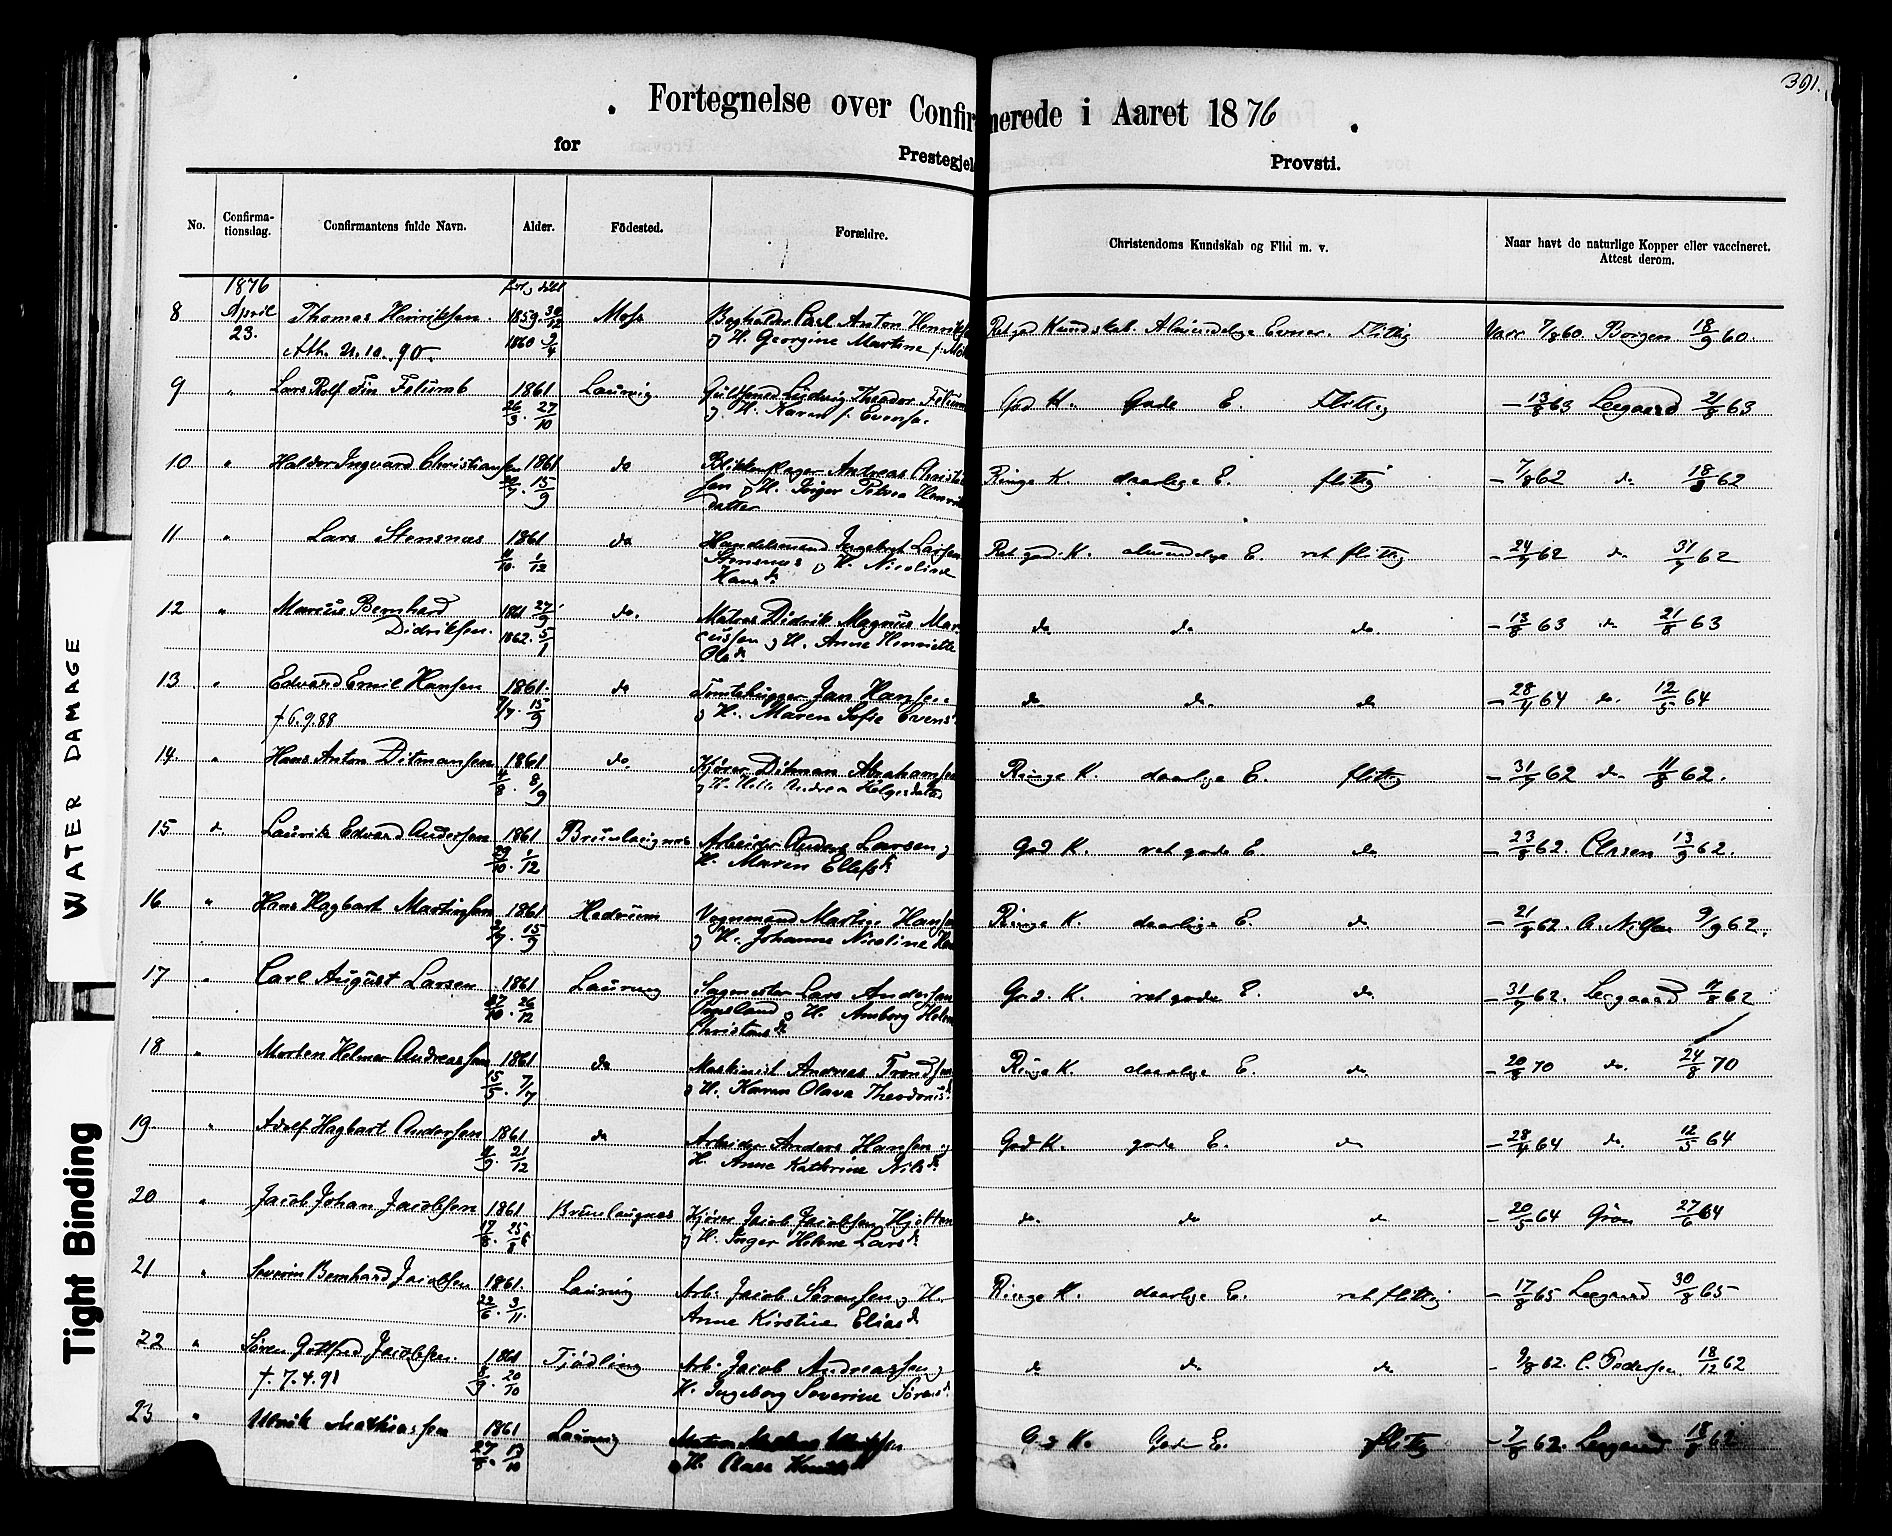 391.
Fortegnelse over Confirmerede i Aaret 1876
for Prestegjel Provsti.
No. Confirma-tionsdag. Confirmantens fulde Navn. Alder. Födested. Forældre. Christendoms Kundskab og Flid m. v. Naar havt de naturlige Kopper eller vaccineret. Attest derom.
1876 født
8 April 23. Thomas Henriksen. 1859 30/12 Moss Carl Anton Henriks Ret god Kundskab. Almindelige Evner. Flittig Vacc 7/8 60 Borgen 18/9 60.
1860 9/4 og H. Georgine Martine f.
9 " Lars Rolf Fin 1861 Laurvig Guldsmed Ludvig Theodor God K. Gode E. Flittig – 13/8 63 Leegaard 21/8 63
26/3. 27/10 og H. Karen f. Evensen.
10 " Haldor Ingvard Christiansen 1861 do Blikkenslager Andreas Christian Ringe K. daarlige E. flittig – 7/8 62 do 18/9 62
15/9 sen og H. Inger Petrea Henriks
datter
11 " Lars Stensnæs 1861 do Handelsmand Ingebret Larsen Ret god K. almindelige E. ret flittig – 24/7 62 do 31/7 62
11/10. 1/12 Stensnæs og H. Nicoline
Hansd.
12 " Marcus Bernhard 1861 27/9 do. Matros Didrik Magnus Mar- do do do – 13/8 63 do 21/8 63
Didriksen. 1862. 5/1 cussen og H. Anne Henriette
Olsd.
13 " Edvard Emil Hansen 1861. do Tomtehugger Jan Hansen do do. do – 28/4 64 do. 12/5 64
† 6.9.88 7/7. 15/9 og H. Maren Sofie Evens
14 " Hans Anton Ditmansen 1861 do. Kjører Ditman Abrahamsen Ringe K. daarlige E. flittig – 31/7 62 do 11/8 62.
8/9 og H. Helle Andrea Helgesdatter
15 " Laurits Edvard Andersen 1861 Brunlaugnæs Arbeider Anders Larsen og God K. ret gode E. do – 23/8 62. Olsen 13/9 62.
29/10. 1/12 H. Maren Ellefsd.
16 " Hans Hagbart Martinsen 1861 Hedrum Vognmand Martin Hansen Ringe K. daarlige E. do – 21/8 62. A. Nilsen 9/9 62.
15/9 og H. Johanne Nicoline
17 " Carl August Larsen 1861 Laurvig Sagmester Lars Andersen God K. ret gode E. do – 31/7 62. Leegaard 11/8 62
27/10. 26/12 og H. Amborg Helene
Christensd.
18 " Morten Helmer Andreassen 1861 do Maskinist Andreas Trondsen Ringe K. daarlige E. do – 20/8 70 do. 24/8 70
15/5. 7/7 og H. Karen Olava Theodorusd.
19 " Adolf Hagbart Andersen 1861 do Arbeider Anders Hansen og God K. gode E. do – 28/4 64 do. 12/5 64
21/12 H. Anne Kathrine Nilsd.
20 " Jacob Johan Jacobsen 1861 Brunlaugnæs Kjører Jacob Jacobsen do. do do – 20/5 64 Grøn 27/6 64
17/8. 25/8 og H. Inger Helene Larsd.
21 " Severin Bernhard Jacobsen 1861. Laurvig Arb. Jacob Sørensen og H. Ringe K. daarlige E. ret flittig – 17/8 65 Leegaard 30/8 65
22/6. 3/11. Anne Kirstine Eliasd.
22 " Søren Gotfred Jacobsen. 1861 Tjødling Arb. Jacob Andreassen og do do do – 9/8 62. C. Pedersen 18/12 62
†. 7.4.91 20/10 H. Ingeborg Severine Sørensd.
23 " Ulrik Mathiassen 1861 Laurvig God K. Gode E. flittig – 7/8 62. Leegaard 18/8 62
27/8. 13/10 og H.
WATER DAMAGE
Tight Binding